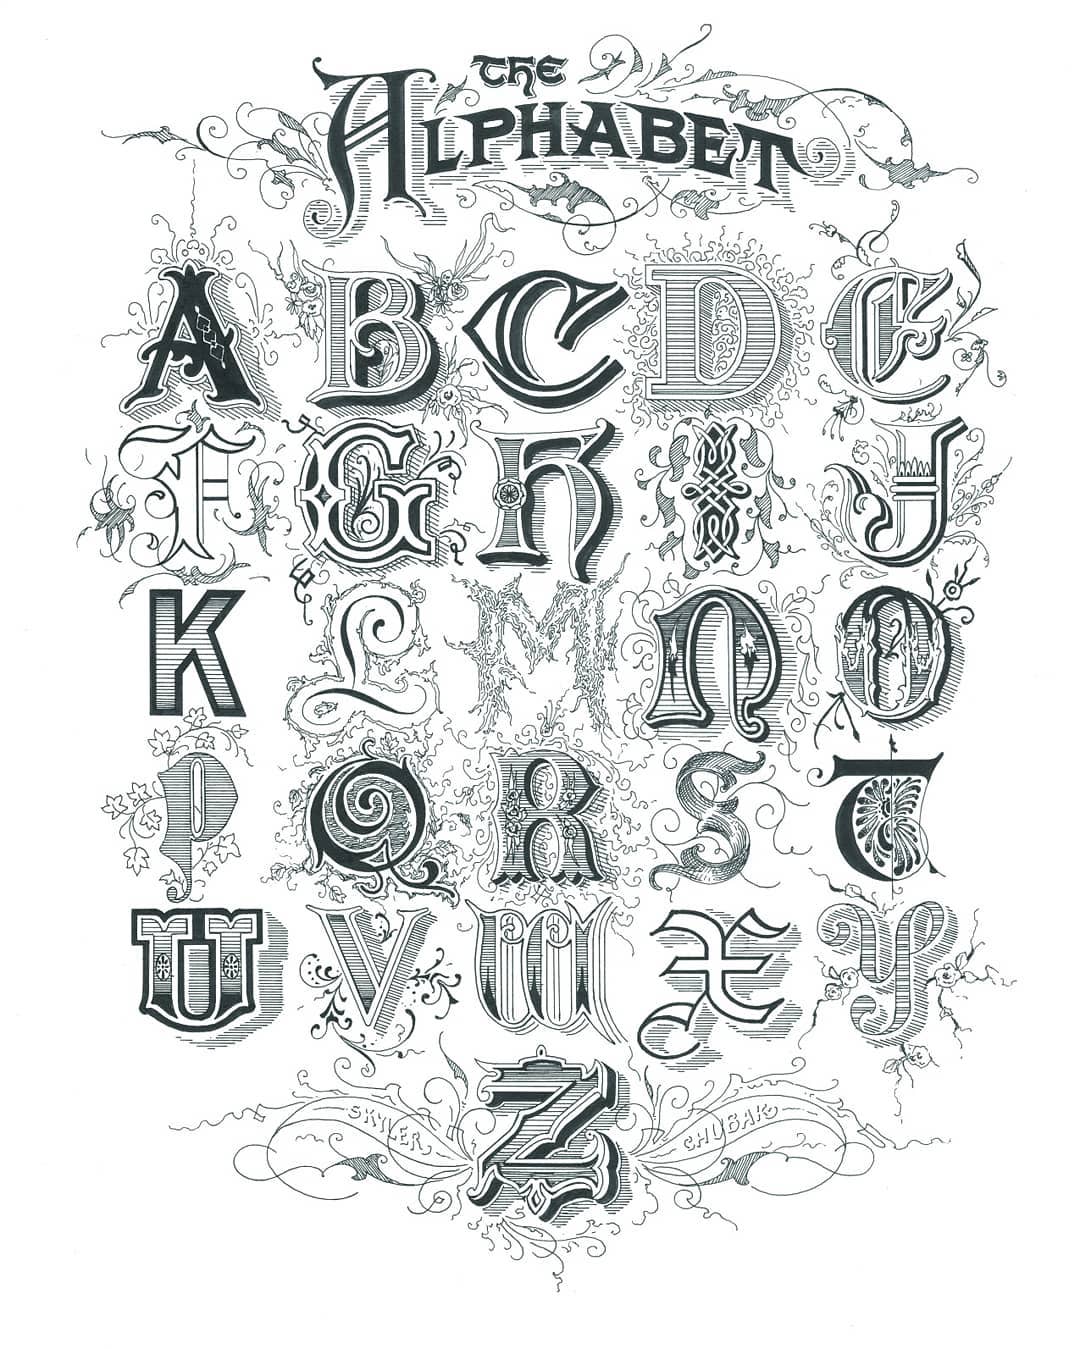 THE
ALPHABET
A B C D E
F G H I J
K L M N O
P Q R S T
U V W X Y
Z
SKYLER CHUBAK